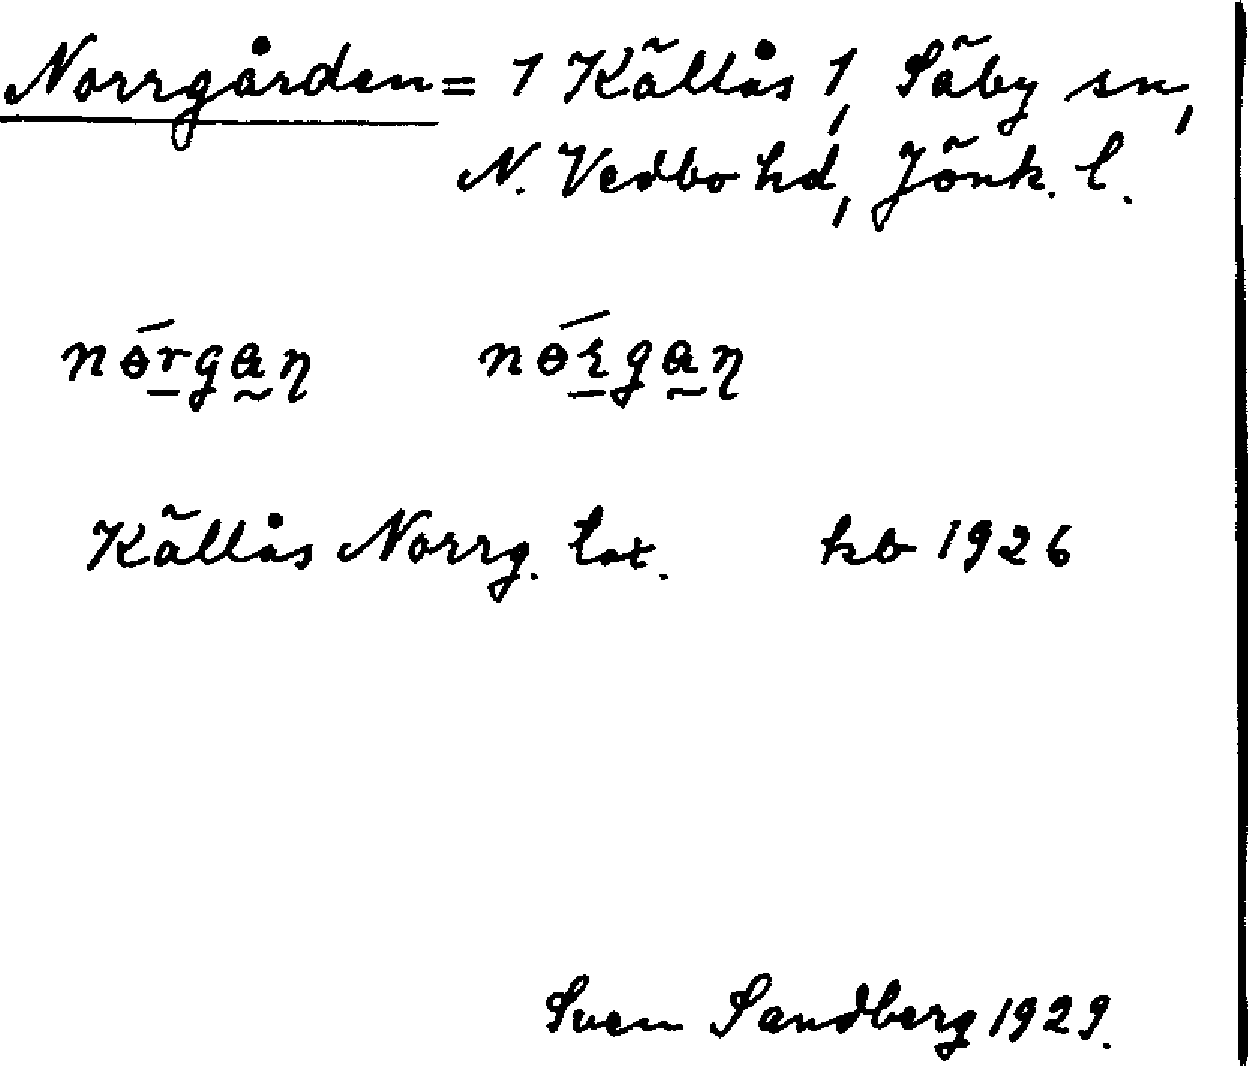 Norrgården = 1 Källås 1, Säby sn,
N. Vedbo hd, Jönk. l.
Källås Norrg. tax. kb 1926
Sven Sandberg 1929.